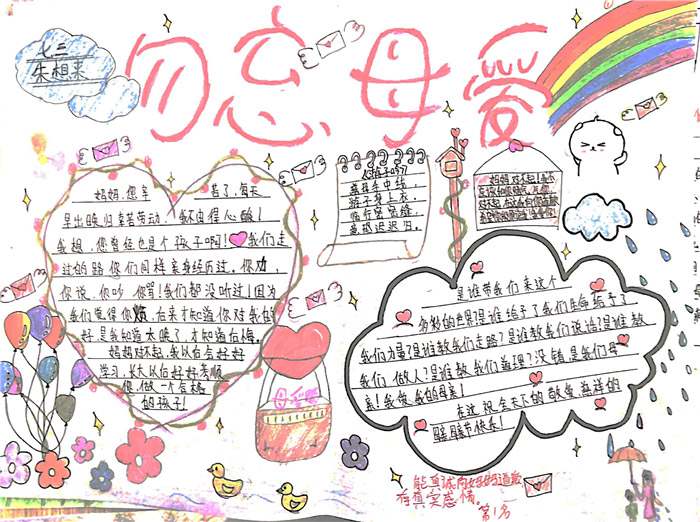 七三
朱想来
勿忘母爱
妈妈,您辛苦了,每天
早出晚归辛苦劳动,我不由得心酸!
我想,您曾经也是个孩子啊!我们走
过的路,你们同样亲身经历过。你劝,
你说,你吵,你骂!我们都没听过!因为
我们觉得你烦,后来才知道你对我的
好,是我知道太晚了,才知道后悔。
妈妈对不起,我从自会好好
学习,长大以后好好孝顺
你,做一个合格
的孩子!
慈母手中线,
游子身上衣。
临行密密缝,
意恐迟迟归。
妈妈对不起!我不
是谁带我们来这个
多彩的世界?是谁给予了我们生命,给予了
我们力量?是谁教我们走路?是谁教我们说话?是谁教
我们做人?是谁教我们道理?没错,是我们母
亲!我爱我的母亲!
在这祝全天下的敬爱,慈祥的
母亲
节快乐!
母爱
能真诚向妈妈道歉
有真实感情。
第1名